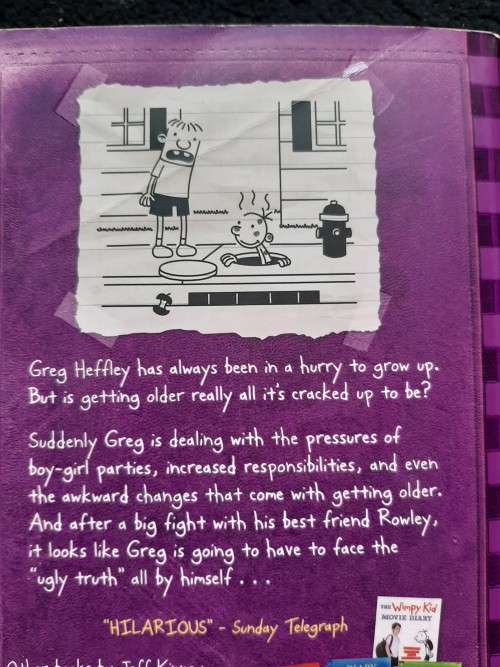 Greg Heffley has always been in a hurry to grow up.
But is getting older really all it's cracked up to be?
Suddenly Greg is dealing with the pressures of
boy-girl parties, increased responsibilities, and even
the awkward changes that come with getting older.
And after a big fight with his best friend Rowley,
it looks like Greg is going to have to face the
"ugly truth" all by himself . . .
"HILARIOUS" - Sunday Telegraph
THE Wimpy Kid
MOVIE DIARY
Other books by Jeff
DIARY